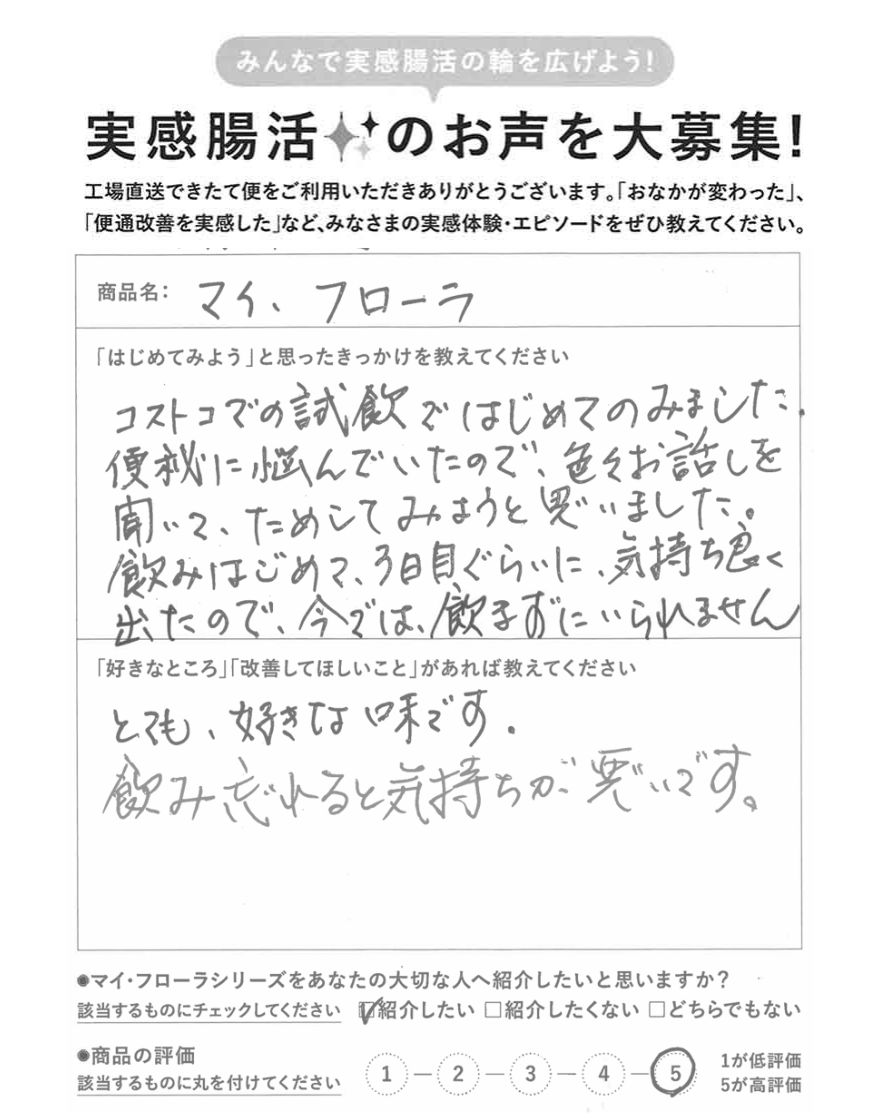 みんなで実感腸活の輪を広げよう!
実感腸活のお声を大募集!
工場直送できたて便をご利用いただきありがとうございます。「おなかが変わった」、
「便通改善を実感した」など、みなさまの実感体験・エピソードをぜひ教えてください。
商品名: マイ、フローラ
「はじめてみよう」と思ったきっかけを教えてください
コストコでの試飲ではじめてのみました.
便秘に悩んでいたので、色々お話しを
聞いて、ためしてみようと思いました。
飲みはじめて、3日目ぐらいに、気持ち良く
出たので、今では、飲まずにいられません
「好きなところ」「改善してほしいこと」があれば教えてください
とても、好きな味です.
飲み忘れると気持ちが悪いです。
●マイ・フローラシリーズをあなたの大切な人へ紹介したいと思いますか?
該当するものにチェックしてください ☑紹介したい □紹介したくない □どちらでもない
●商品の評価
該当するものに丸を付けてください
1 — 2 — 3 — 4 — 5
1が低評価
5が高評価